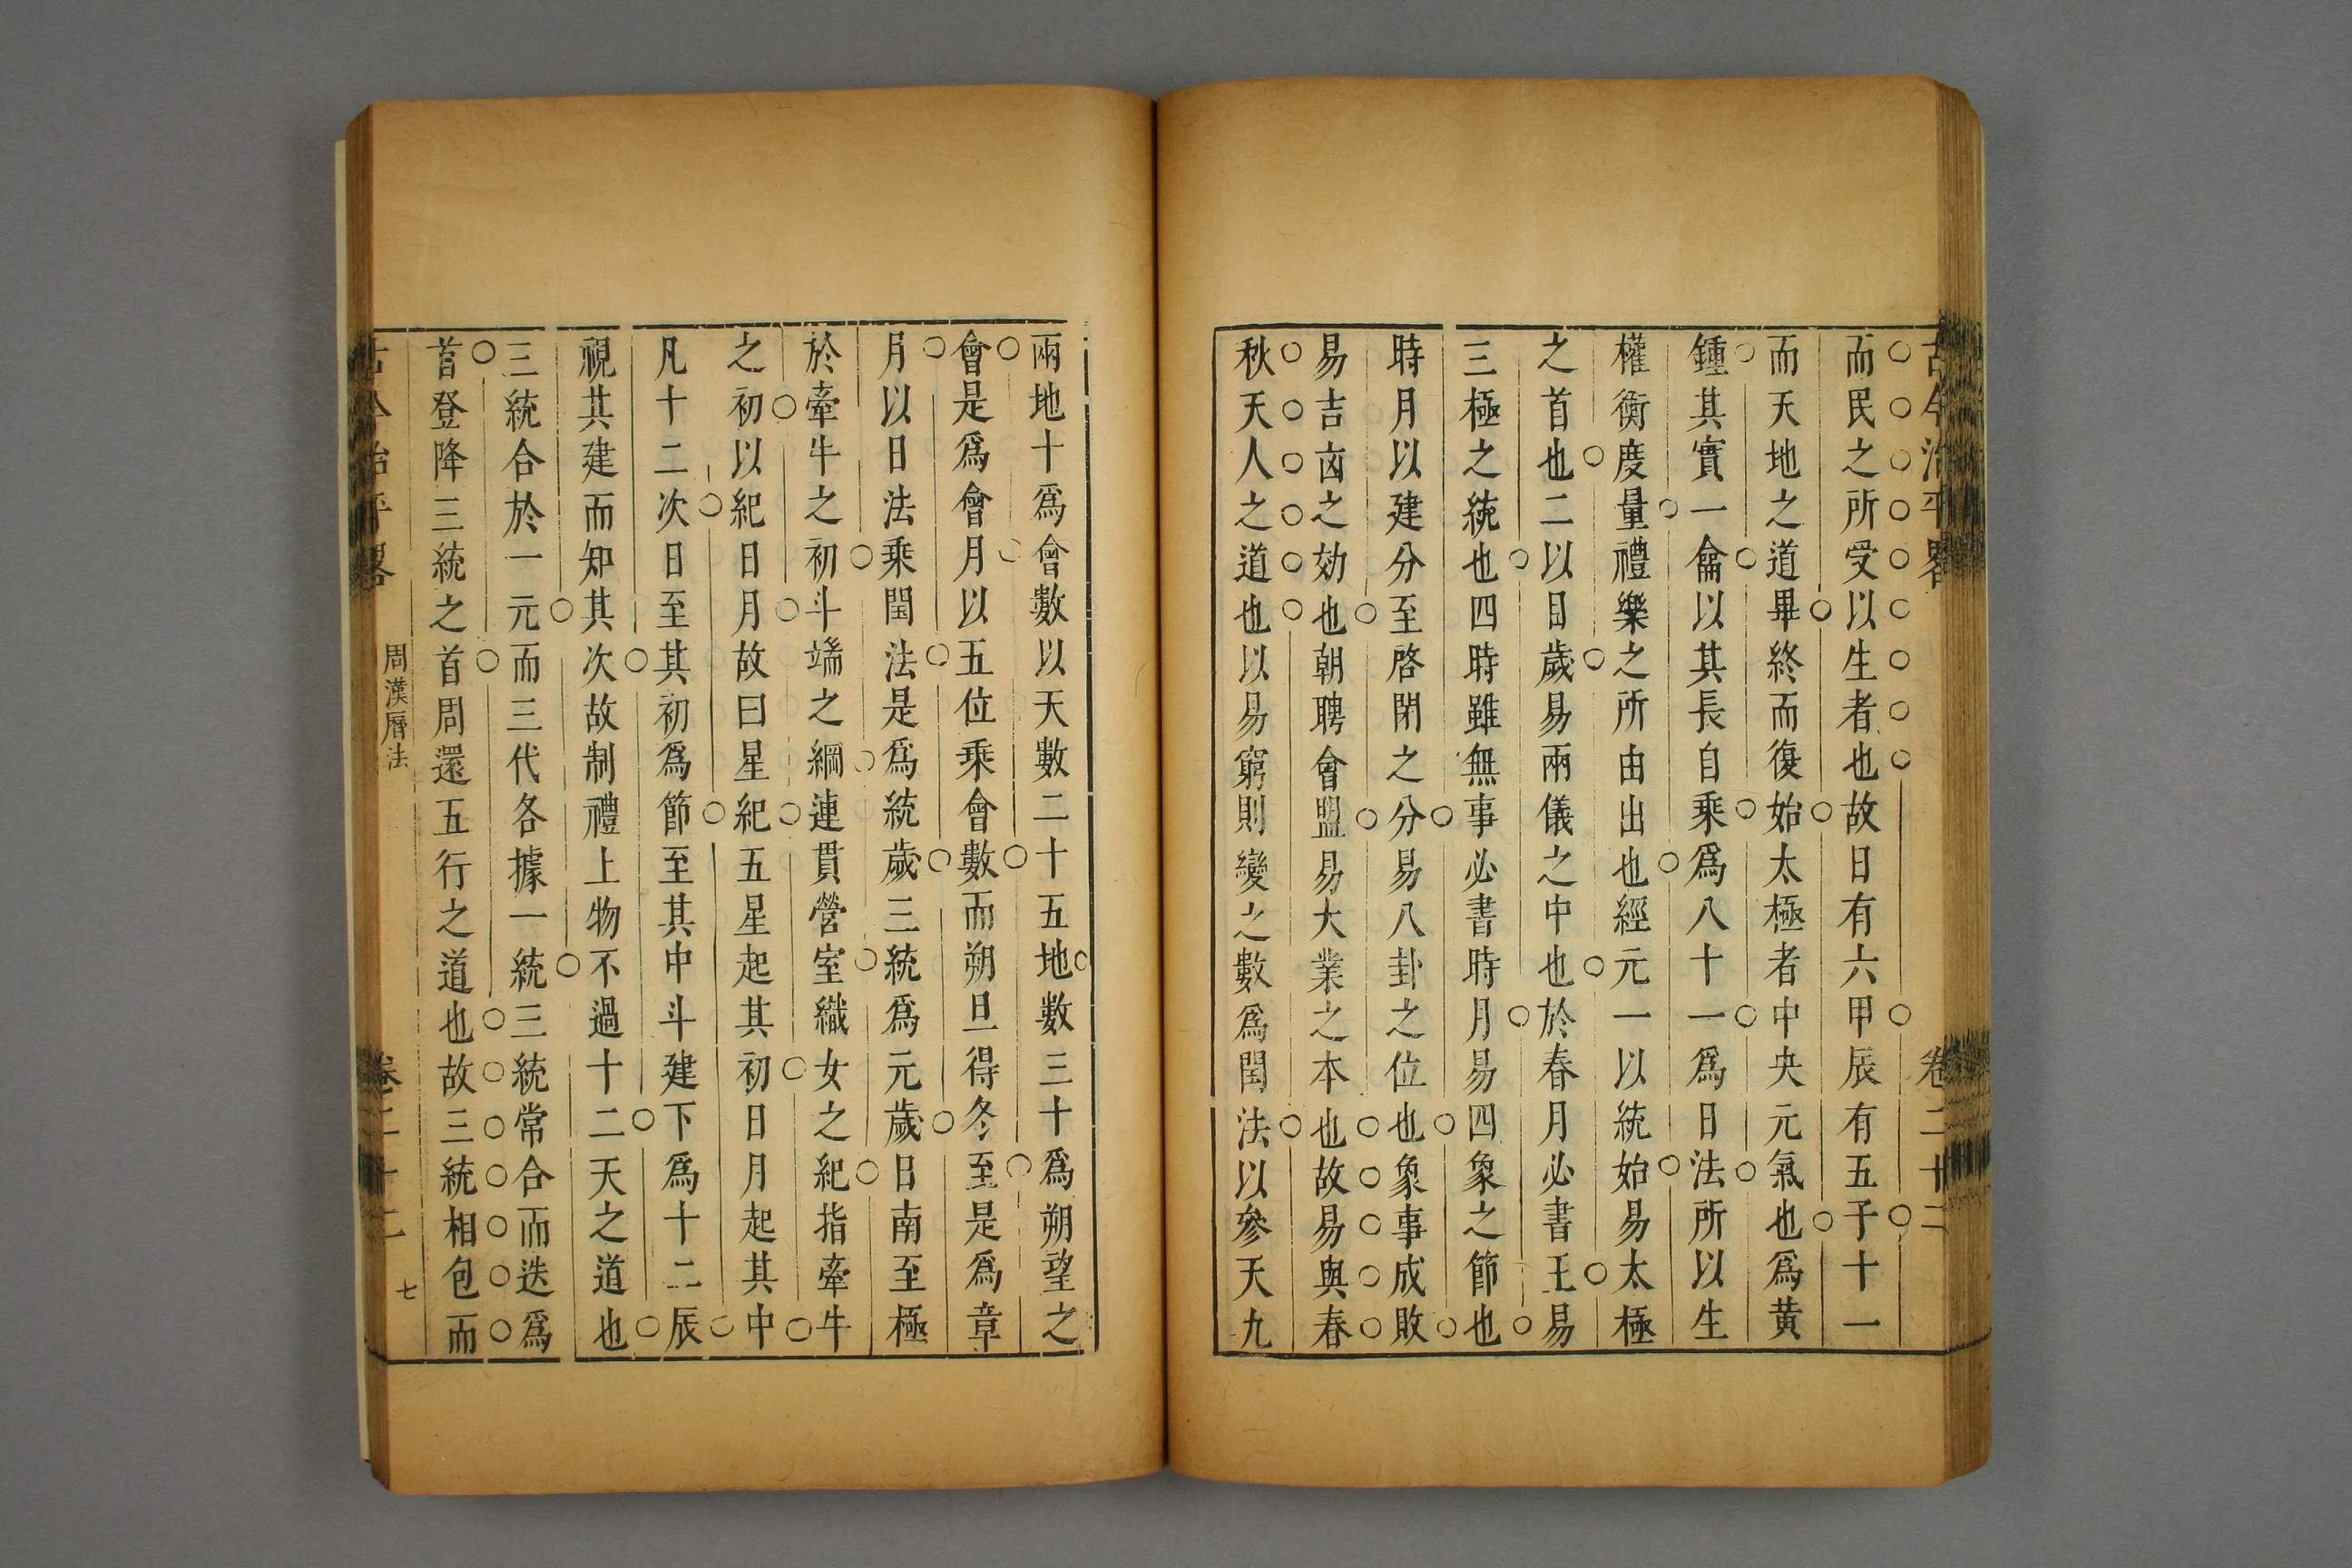 古今治平畧 卷二十二
而民之所受以生者也故日有六甲辰有五子十一
而天地之道畢終而復始太極者中央元氣也爲黃
鍾其實一龠以其長自乘爲八十一爲日法所以生
權衡度量禮樂之所由出也經元一以統始易太極
之首也二以目歲易兩儀之中也於春月必書王易
三極之統也四時雖無事必書時月易四象之節也
時月以建分至啓閉之分易八卦之位也象事成敗
易吉凶之効也朝聘會盟易大業之本也故易與春
秋天人之道也以易窮則變之數爲閏法以參天九
兩地十爲會數以天數二十五地數三十爲朔望之
會是爲會月以五位乘會數而朔旦得冬至是爲章
月以日法乘閏法是爲統歲三統爲元歲日南至極
於牽牛之初斗端之綱連貫營室織女之紀指牽牛
之初以紀日月故曰星紀五星起其初日月起其中
凡十二次日至其初爲節至其中斗建下爲十二辰
視其建而知其次故制禮上物不過十二天之道也
三統合於一元而三代各據一統三統常合而迭爲
首登降三統之首周還五行之道也故三統相包而
古今治平畧 周漢曆法 卷二十二 七